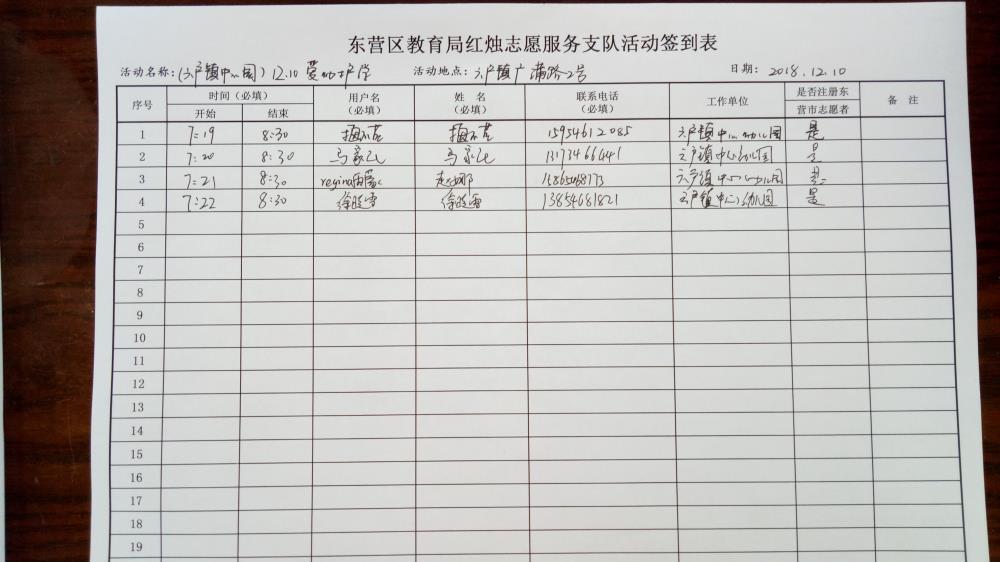 东营区教育局红烛志愿服务支队活动签到表
活动名称：（六户镇中心园）12.10 爱心护学 活动地点：六户镇广蒲路2号 日期：2018.12.10
序号 时间（必填） 用户名（必填） 姓名（必填） 联系电话（必填） 工作单位 是否注册东营市志愿者 备注
开始 结束
1 7:19 8:30 15954612085 六户镇中心幼儿园 是
2 7:20 8:30 13173466441 六户镇中心幼儿园 是
3 7:21 8:30 regina 六户镇中心幼儿园 是
4 7:22 8:30 徐晓雪 徐晓雪 13854681821 六户镇中心幼儿园 是
5
6
7
8
9
10
11
12
13
14
15
16
17
18
19